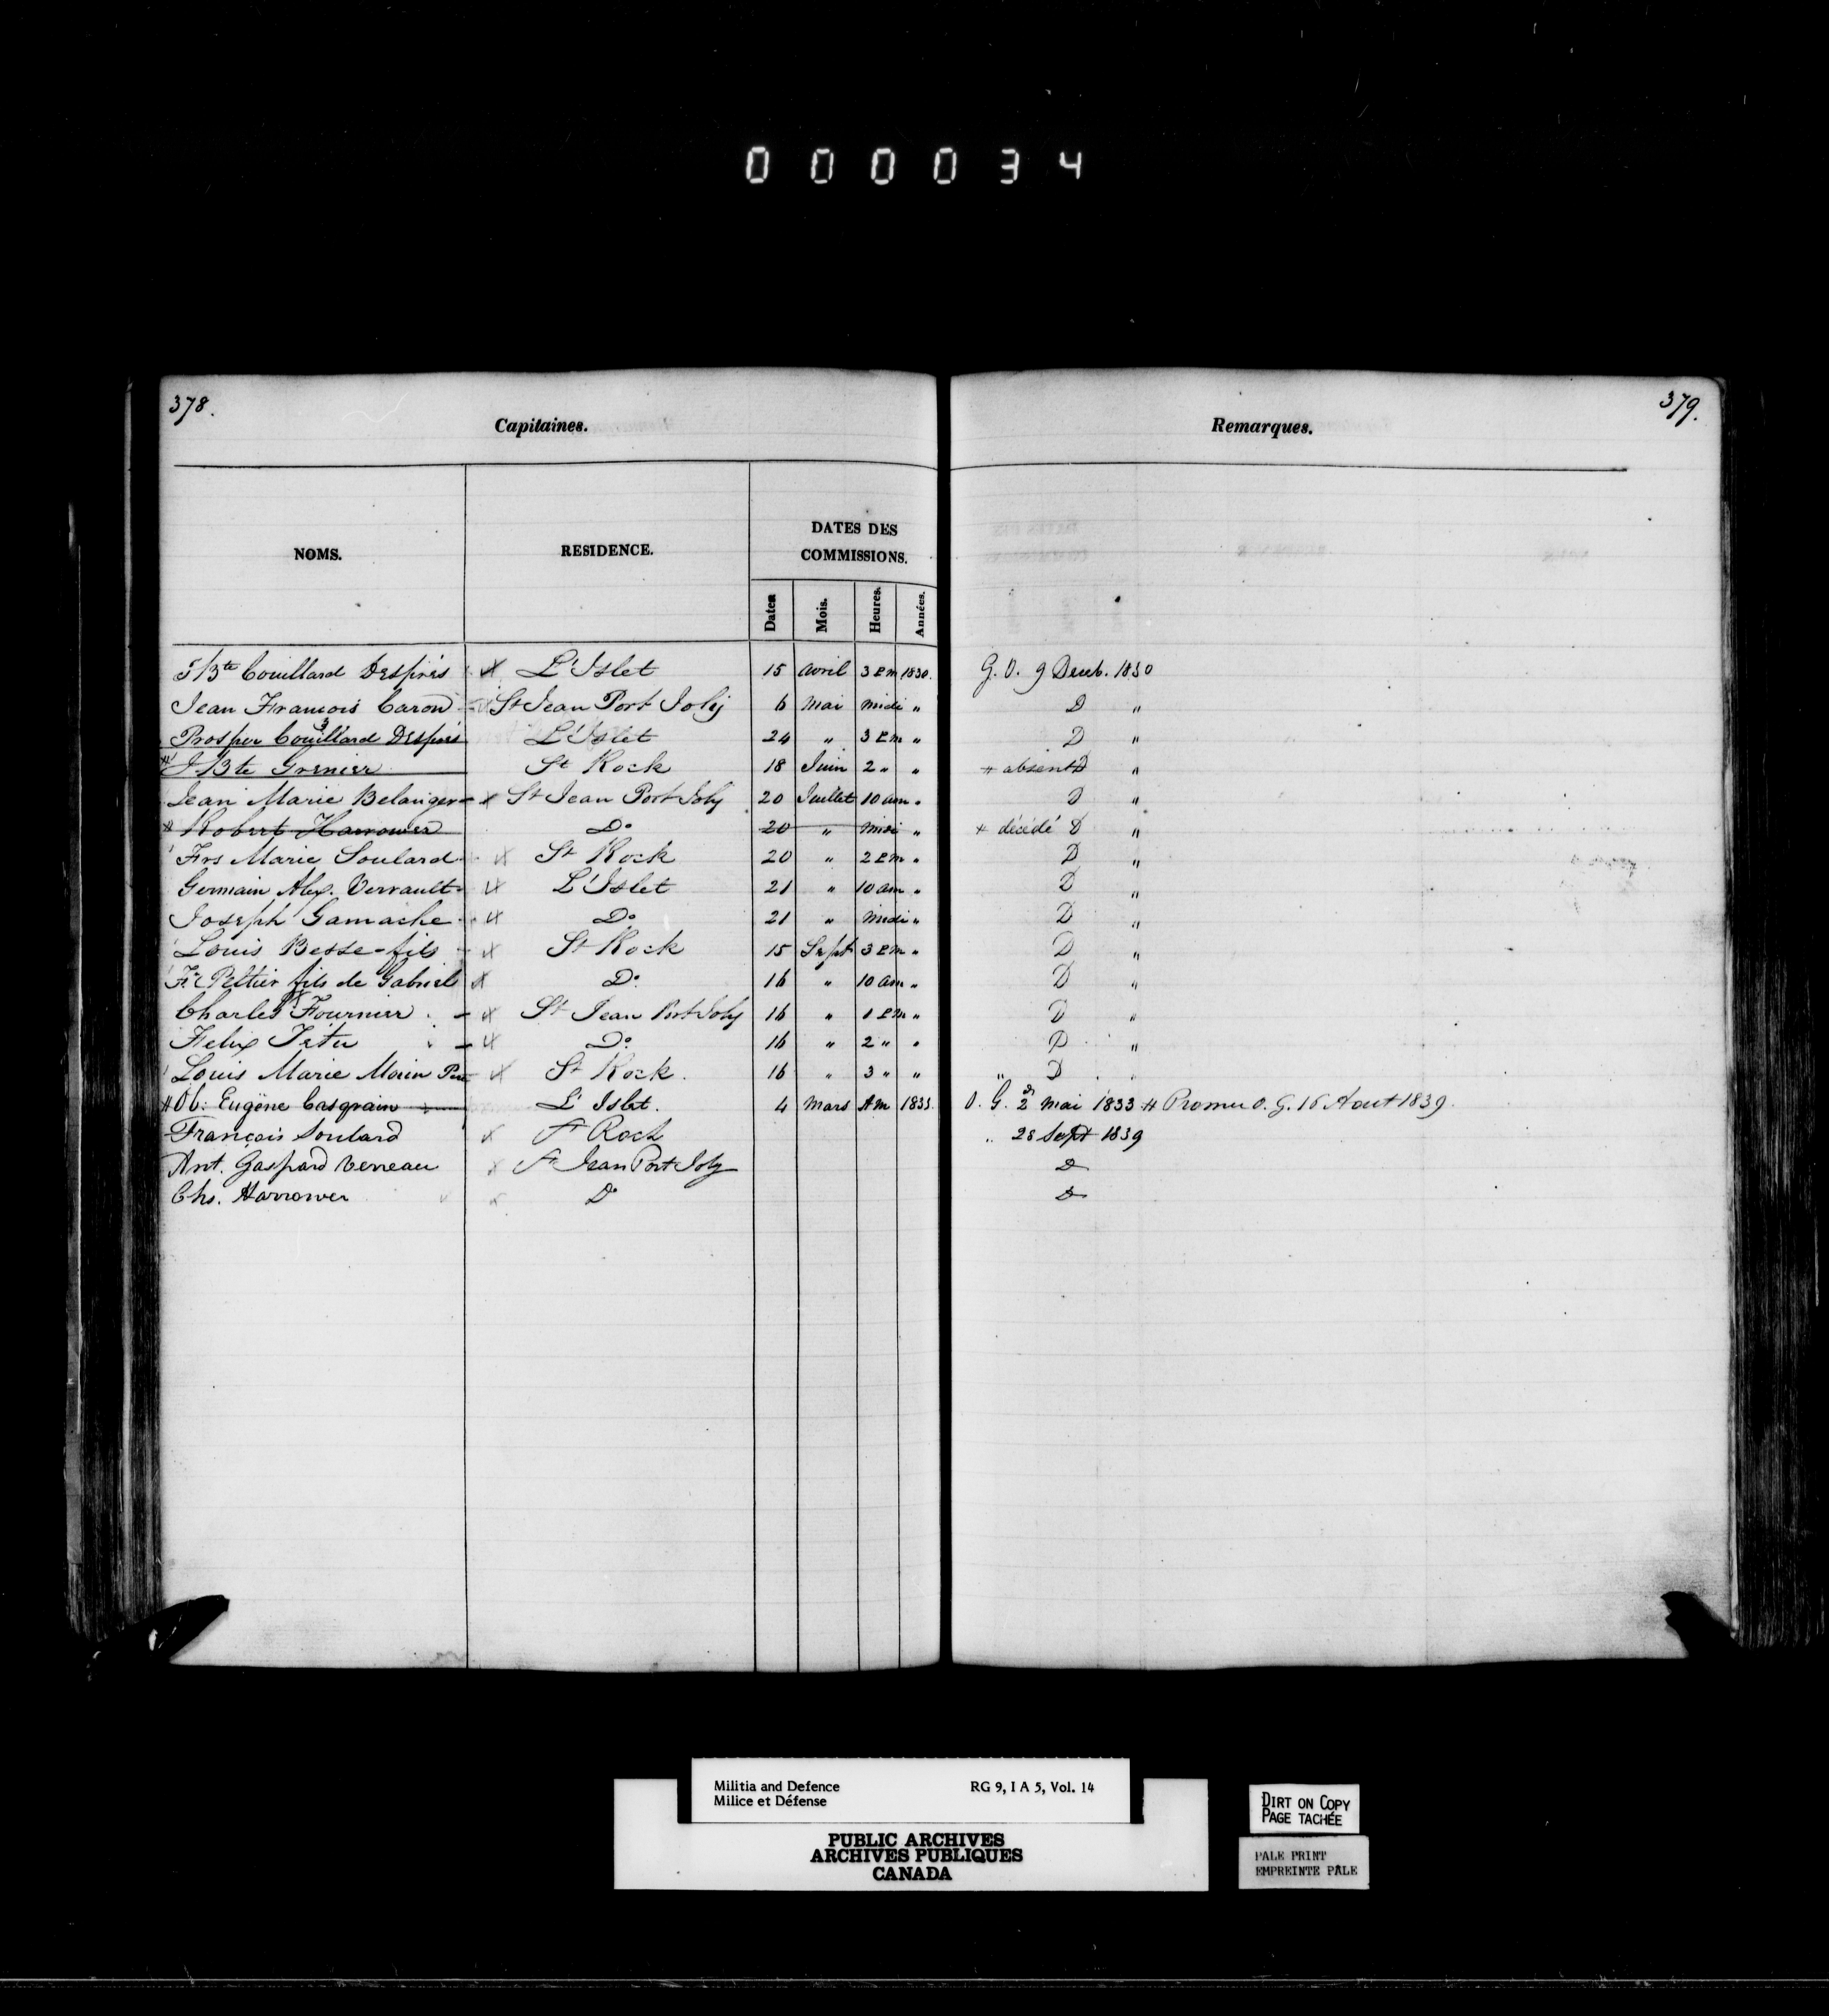 000034
378.
Capitaines.
Remarques.
379.
NOMS.
RESIDENCE.
DATES DES
COMMISSIONS.
Dates
Mois.
Heures.
Années.
J Bte Couillard Després L'Islet 15 avril 3 P.m 1830. G. O. 9 Deceb. 1830
Jean François Caron St Jean Port Joly 6 Mai midi " D "
Prosper Couillard Després L'Islet 24 " 3 P.m " D "
J Bte Grenier St Rock 18 Juin 2 " " + absent D "
Jean Marie Belanger x St Jean Port Joly 20 Juillet 10 am " D "
* Robert Harrower Do 20 " midi " + décédé D "
Frs Marie Soulard St Rock 20 " 2 P.m " D "
Germain Alex. Verrault L'Islet 21 " 10 am " D "
Joseph Gamache Do 21 " midi " D "
Louis Besse-fils x St Rock 15 Sept 3 P.m " D "
Fr. Peltier fils de Gabriel x Do 16 " 10 am " D "
Charles Fournier x St Jean Port Joly 16 " 1 P.m " D "
Felix Têtu Do 16 " 2 " " D "
Louis Marie Morin x St Rock. 16 " 3 " " " D "
# Eugène Casgrain L'Islet. 4 Mars A.m 1833. O. G. 2 Mai 1833 # Promu O. G. 16 Aout 1839.
François Soulard x St Roch " 28 Sept 1839
Ant. Gaspard Verreau x St Jean Port Joly D
Chs. Harrower x Do D
Militia and Defence RG 9, I A 5, Vol. 14
Milice et Défense
PUBLIC ARCHIVES
ARCHIVES PUBLIQUES
CANADA
DIRT ON COPY
PAGE TACHÉE
PALE PRINT
EMPREINTE PÂLE